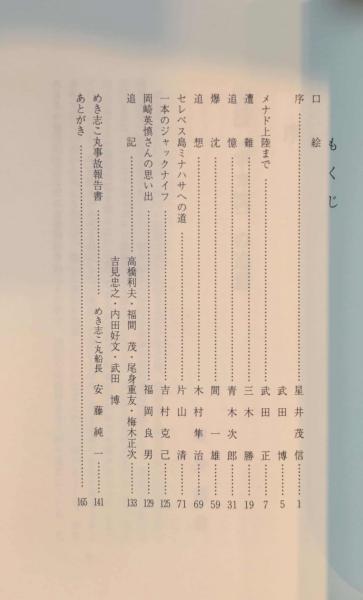 もくじ
口絵
序……………星井茂信 1
武田 博 5
メナド上陸まで……………武田 正 7
遭難……………三木 勝 19
追憶……………青木次郎 31
爆沈……………間 一雄 59
追想……………木村隼治 69
セレベス島ミナハサへの道……………片山 清 71
一本のジャックナイフ……………吉村克己 125
岡崎英慎さんの思い出……………福岡良男 129
追記……………高橋利夫・福間 茂・尾身重友・梅木正次 133
吉見忠之・内田好文・武田 博
めき志こ丸事故報告書……………めき志こ丸船長 安藤純一 141
あとがき…………… 165